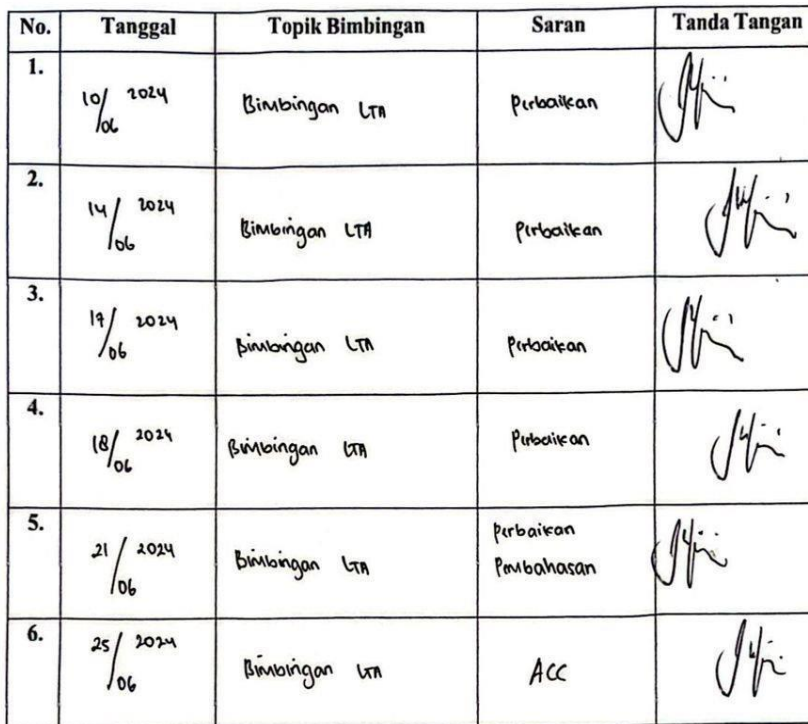 No. Tanggal Topik Bimbingan Saran Tanda Tangan
1. 10/06 2024 Bimbingan LTA Perbaikan
2. 14/06 2024 Bimbingan LTA Perbaikan
3. 17/06 2024 Bimbingan LTA Perbaikan
4. 18/06 2024 Bimbingan LTA Perbaikan
5. 21/06 2024 Bimbingan LTA Perbaikan
Pembahasan
6. 25/06 2024 Bimbingan LTA ACC